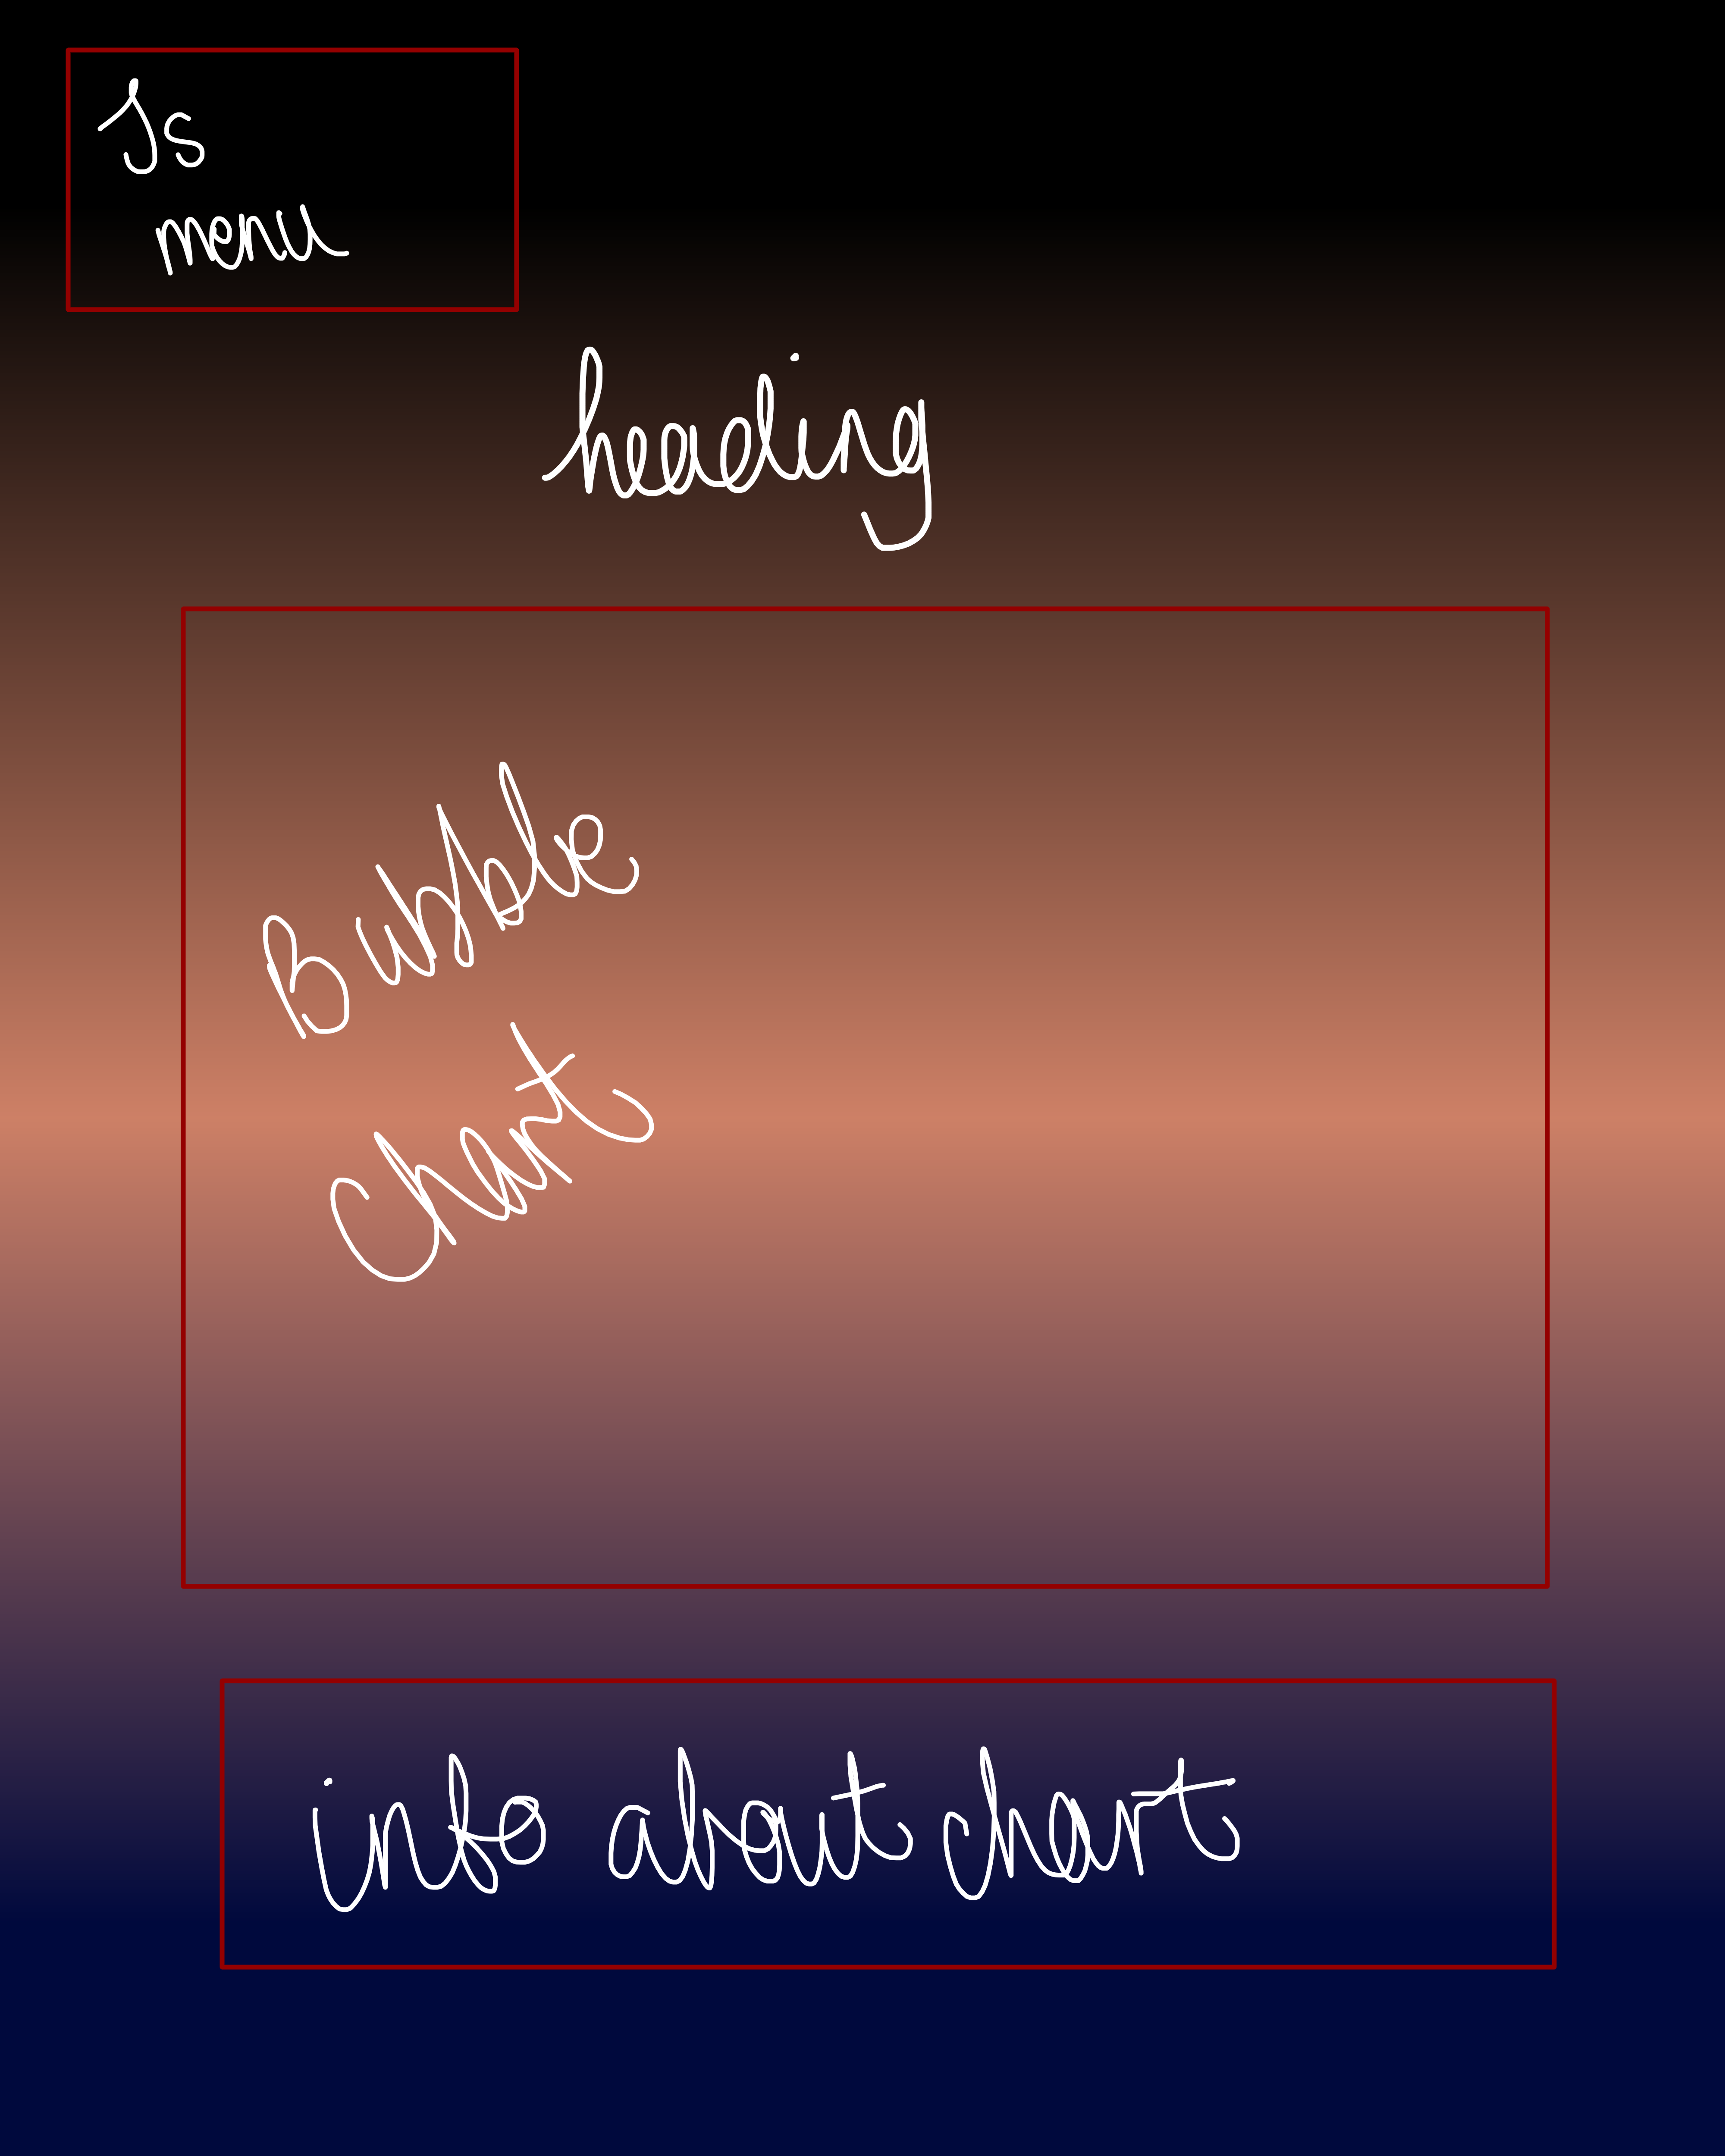 Js
menu
heading
Bubble
Chart
info about chart